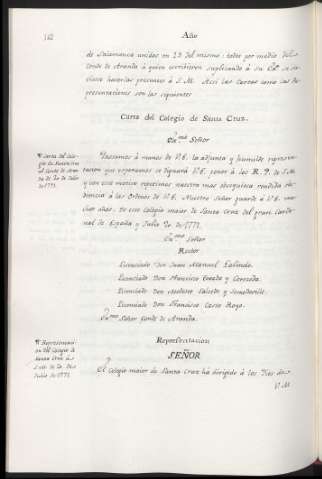 162
Año
de Salamanca unidos en 23 del mismo: todos por medio del
Conde de Aranda à quien escribieron suplicando à su Exª se sir-
viese hacerlas presentes à S.M. Assi las Cartas como las Re-
presentaciones son las siguientes
Carta del Colegio de Santa Cruz.
Exmo Señor
Carta del Cole-
gio de Santa Cruz
al Conde de Aran-
da de 20 de Julio
de 1771.
Passamos à manos de V.E. la adjunta y humilde represen-
tacion que esperamos se dignarà V.E. poner à los R. P. de S.M.
y con este motivo repetimos nuestra mas obsequiosa rendida obe-
diencia à las Ordenes de V.E. Nuestro Señor guarde à V.E. mu-
chos años. De este Colegio maior de Santa Cruz del gran Carde-
nal de España y Julio 20 de 1771.
Exmo Señor
Rector.
Licenciado Don Juan Manuel
Licenciado Don Francisco
Licenciado Don
Licenciado Don Francisco Royo.
Exmo Señor Conde de Aranda.
Representacion
SEÑOR
Representaci-
on del Colegio de
Santa Cruz à
S.M. de 20 de
Julio de 1771.
El Colegio maior de Santa Cruz ha dirigido à los Pies de
V.M.